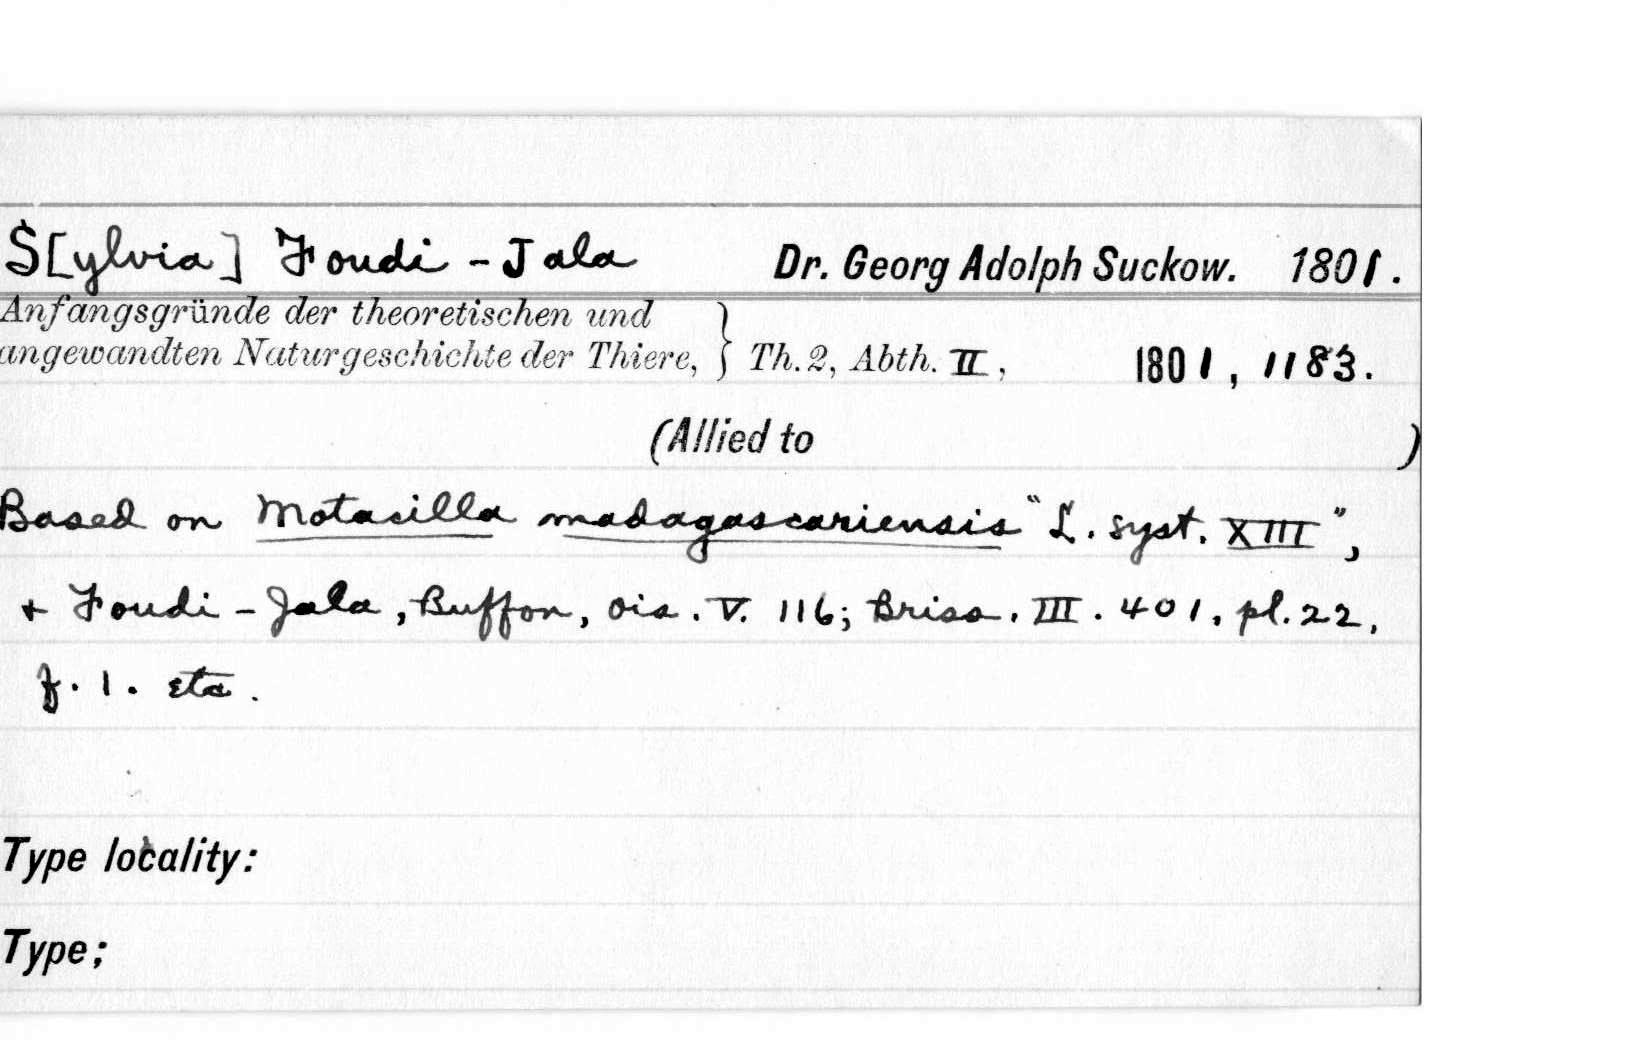 S[ylvia] Foudi-Jala Dr. Georg Adolph Suckow. 1801.
Anfangsgründe der theoretischen und
angewandten Naturgeschichte der Thiere, } Th. 2, Abth. II, 1801, 1183.
(Allied to )
Based on Motacilla madagascariensis "L. syst. XIII",
+ Foudi-Jala, Buffon, Ois. V. 116; Briss. III. 401, pl. 22,
f. 1. etc.
Type locality:
Type;